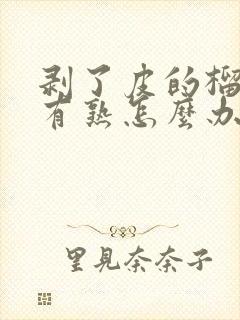 剥了皮的榴
有熟怎麼办
里見奈奈子